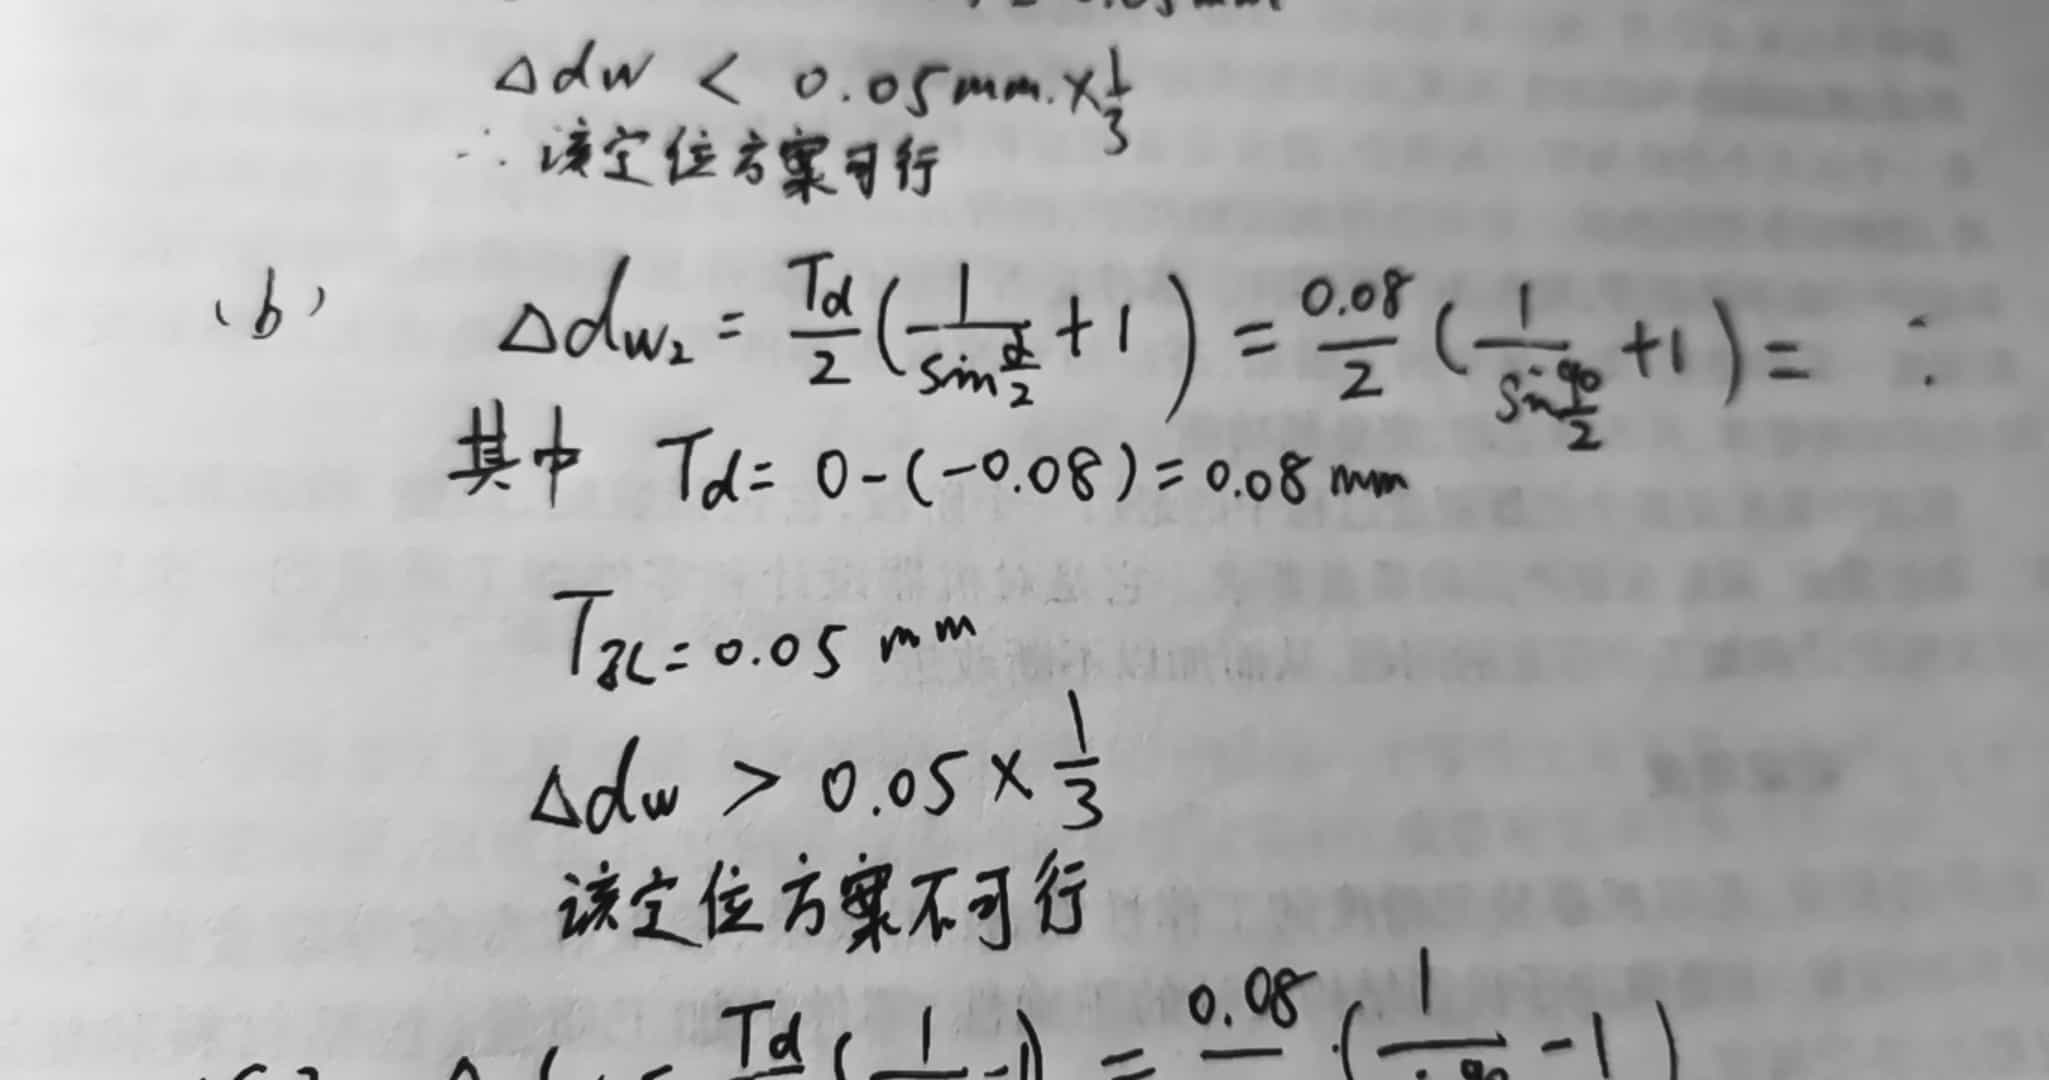 Δdw < 0.05mm.×1/3
∴ 该定位方案可行
(b) Δdw₂ = Td/2 (1/sin α/2 + 1) = 0.08/2 (1/sin 90/2 + 1) =
其中 Td = 0-(-0.08) = 0.08 mm
= 0.05 mm
Δdw > 0.05 × 1/3
该定位方案不可行
Td ( 1 -1) = 0.08 · ( 1 -1 )